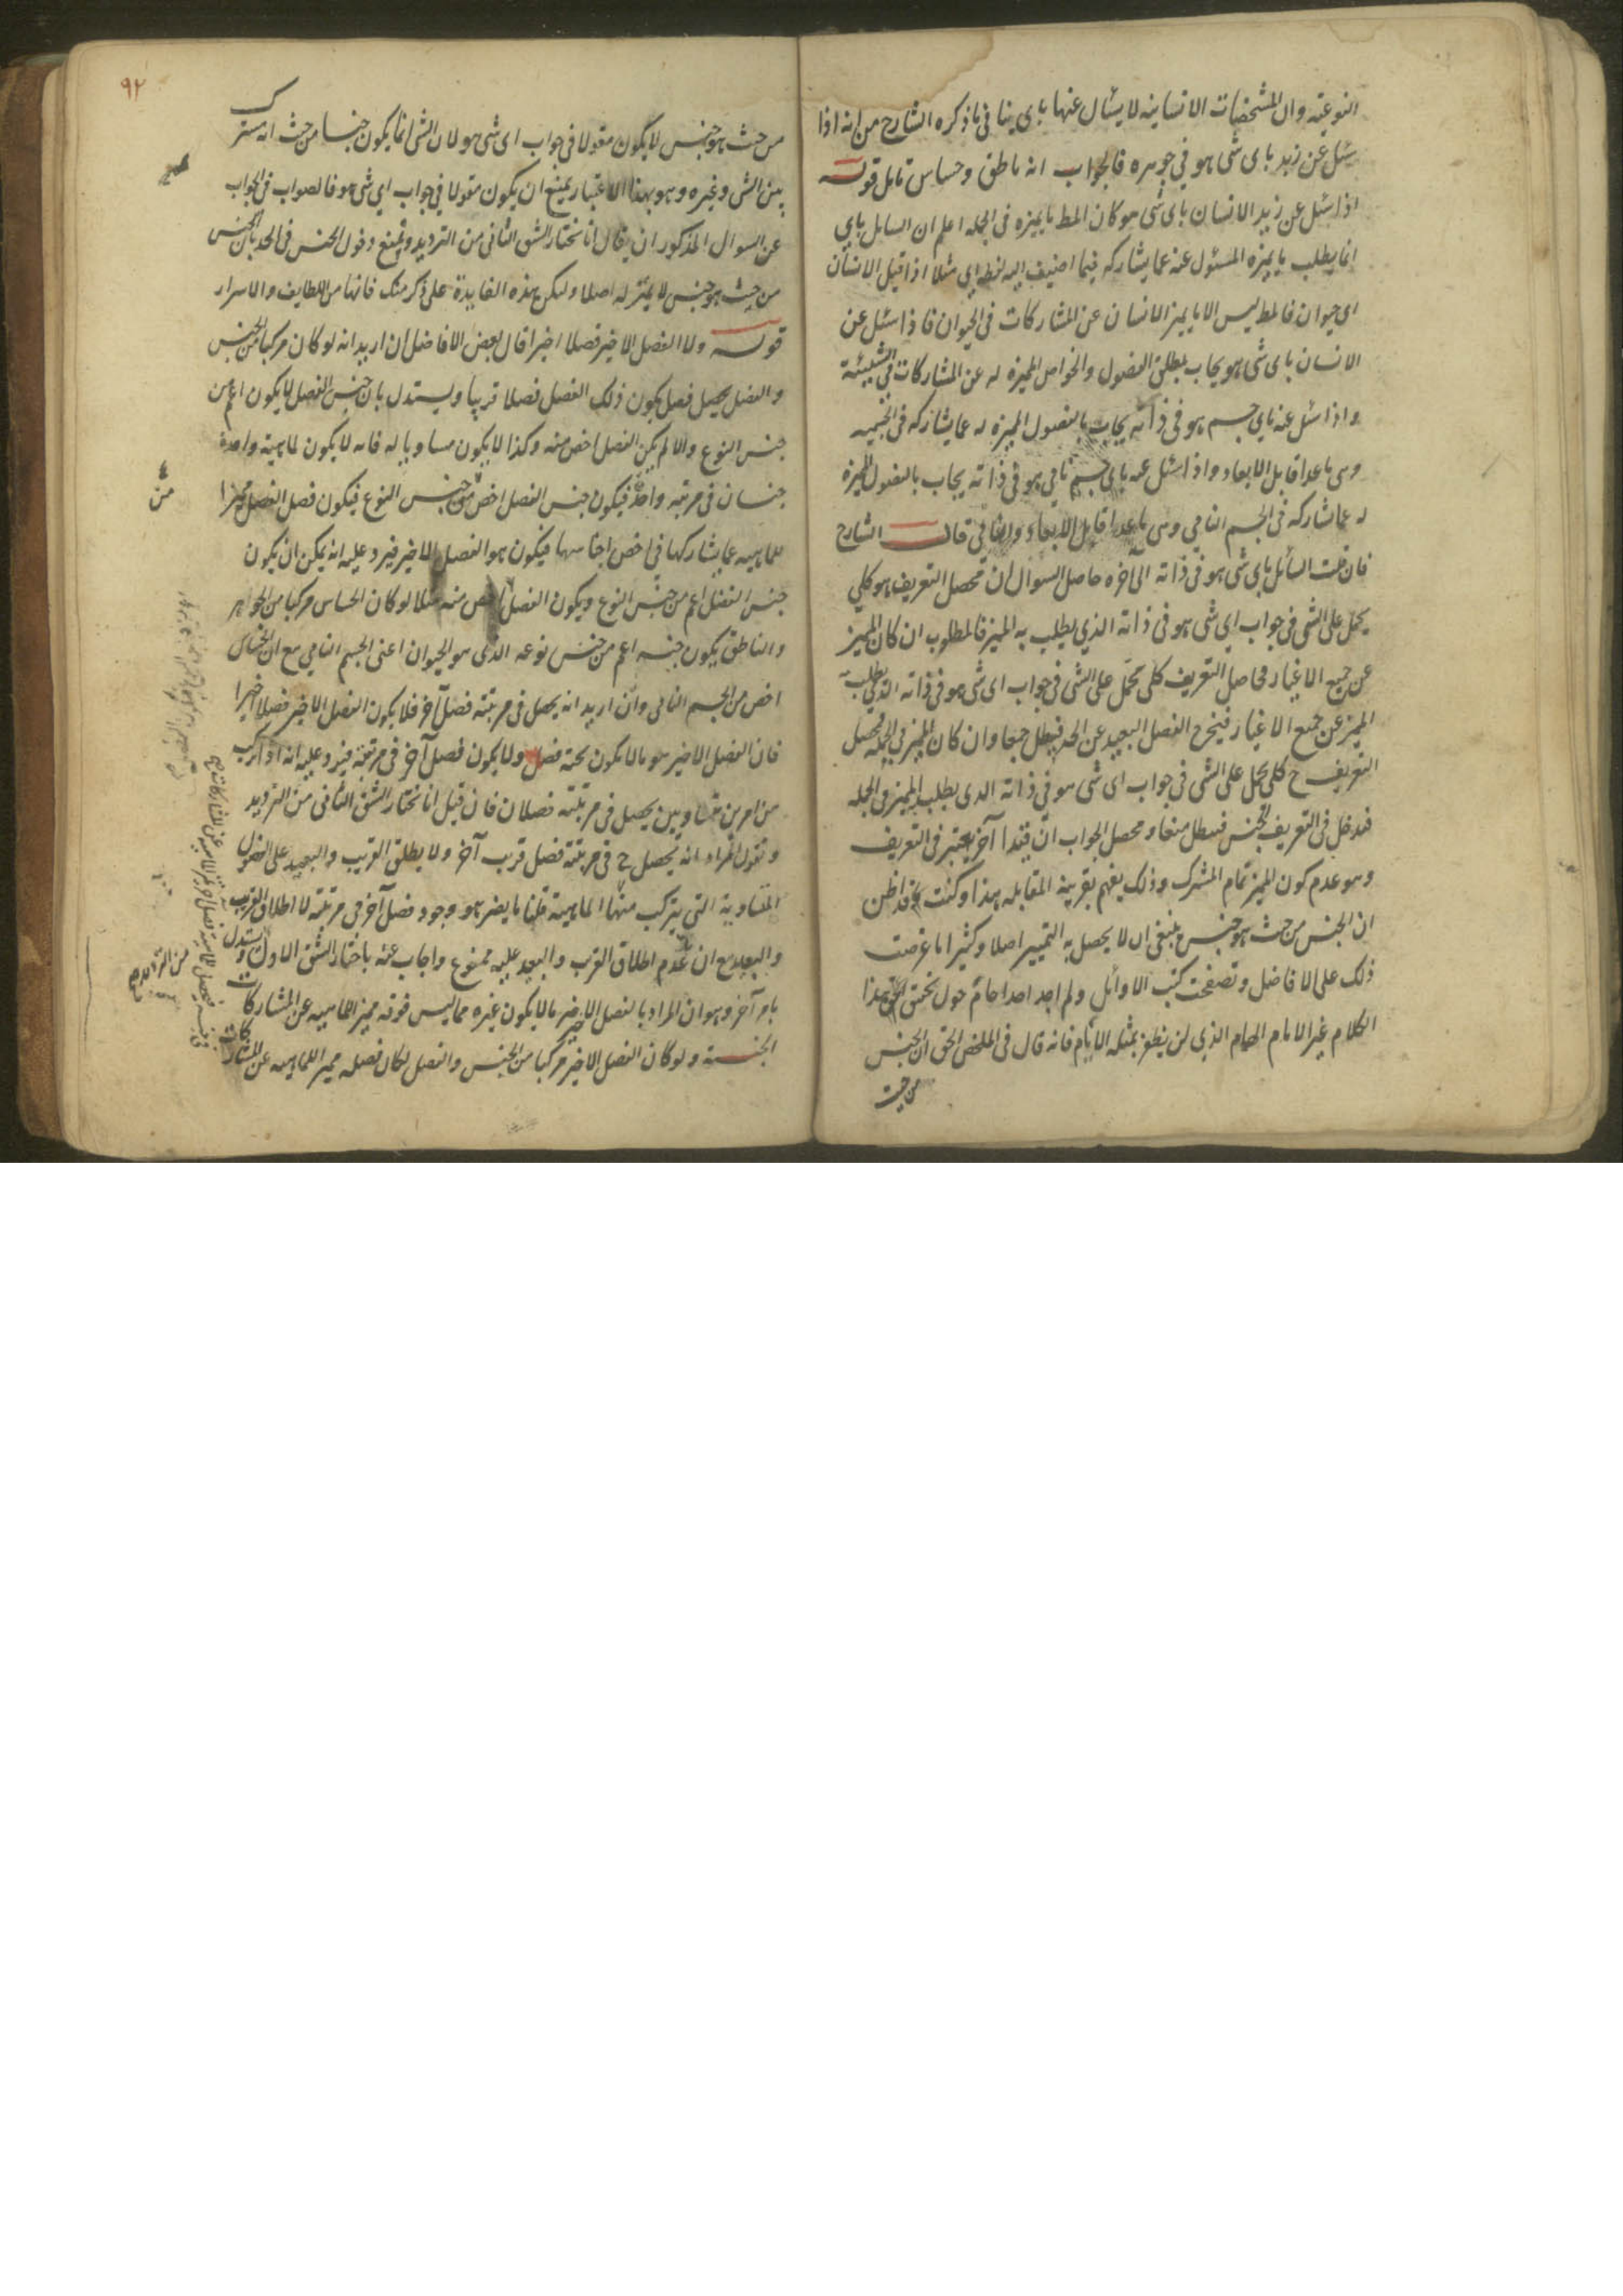 النوعية وان المشخصات الانسانية لا يسئال عنها باى ينافى ما ذكره الشارح من انه اذا
سئل عن زيد باى شى هو في جوهره فالجواب انه ناطق وحساس تامل قوله
اذا سئل عن زيد الانسان باى شى هو كان المط ما يميزه فى الجمله اعلم ان السايل باي
انما يطلب ما يميزه المسئول عنه عما يشاركه فيما اضيف اليه لفظ اي مثلا اذا قيل الانسان
اى حيوان فالمط ليس الا ما يميز الانسان عن المشاركات فى الحيوان فاذا سئل عن
الانسان باى شى هو يجاب بمطلق الفصول والخواص المميزة له عن المشاركات فى الشيئية
واذا سئل عنه باي جسم هو فى ذاته يجاب بالفصول المميزة له عما يشاركه فى الجسميه
وهى ما عدا قابل الابعاد واذا سئل عنه باى جسم نامي هو فى ذاته يجاب بالفصول المميزة
له عما شاركه فى الجسم النامي وهى ما عدا قابل الابعاد والنامى قال الشارح
فان قلت السائل باى شى هو فى ذاته الى اخره حاصل السوال ان محصل التعريف هو كلي
يحمل على الشى فى جواب اى شى هو فى ذاته الذي يطلب به المميز فالمطلوب ان كان المميز
عن جميع الاغيار فحاصل التعريف كلى يحمل على الشى فى جواب اى شى هو فى ذاته الذي يطلب به
المميز عن جميع الاغيار فيخرج الفصل البعيد عن الحد فيبطل جمعا وان كان المميز فى الجمله فمحصل
التعريف ح كلى يحمل على الشى فى جواب اى شى هو فى ذاته الذى يطلب المميز فى الجمله
فيدخل فى التعريف الجنس فيبطل منعا ومحصل الجواب ان قيدا آخر يعتبر فى التعريف
وهو عدم كون المميز تمام المشترك وذلك يفهم بقرينة المقابله هذا وكنت اظن
ان الجنس من حيث هو جنس ينبغى ان لا يحصل به التمييز اصلا وكثيرا ما عرضت
ذلك على الافاضل وتصفحت كتب الاوائل ولم اجد احدا حام حول تحقيق هذا
الكلام غير الامام الهمام الذي لن يظفر بمثله الايام فانه قال فى الملخص الحق ان الجنس
من حيث
٩٢
من حيث هو جنس لا يكون مقولا فى جواب اى شى هو لان الشى انما يكون جنسا من حيث انه مشترك
بين الشى وغيره وهو بهذا الاعتبار يمتنع ان يكون مقولا فى جواب اي شى هو فالصواب فى الجواب
عن السوال المذكور ان يقال انا نختار الشق الثانى من الترديد ونمنع دخول الجنس فى الحد بان الجنس
من حيث هو جنس لا يميز له اصلا وليكن هذه الفايدة على ذكر منك فانها من اللطايف والاسرار
قوله ولا الفصل الاخير فصلا اخيرا قال بعض الافاضل ان اريد انه لو كان مركبا من الجنس
والفصل يحصل فصل يكون ذلك الفصل فصلا قريبا ويستدل بان جنس الفصل لا يكون اعم من
جنس النوع والا لم يكن الفصل اخص منه وكذا لا يكون مساويا له فانه لا يكون لماهية واحدة
جنسان فى مرتبة واحدة فيكون جنس الفصل اخص من جنس النوع فيكون فصل الفصل مميزا
للماهيه عما يشاركها فى اخص اجناسها فيكون هو الفصل الاخير فيرد عليه انه يمكن ان يكون
جنس الفصل اعم من جنس النوع ويكون الفصل اخص منه مثلا لو كان الحساس مركبا من الجوهر
والناطق يكون جنسه اعم من جنس نوعه الذى هو الحيوان اعنى الجسم النامي مع ان الحساس
اخص من الجسم النامى وان اريد انه يحصل فى مرتبته فصل آخر فلا يكون الفصل الاخير فصلا اخيرا
فان الفصل الاخير هو ما لا يكون تحته فصل ولا يكون فصل آخر فى مرتبته فيرد عليه انه اذا تركب
من امرين متساويين يحصل فى مرتبته فصلان فان قيل انا نختار الشق الثانى من الترديد
ونقول المراد انه يحصل ح فى مرتبته فصل قريب آخر ولا يطلق القريب والبعيد على الفصول
المتساوية التى يتركب منها الماهية قلنا ما يضر هو وجود فصل آخر فى مرتبته لا اطلاق القريب
والبعيد مع ان عدم اطلاق القريب والبعيد عليه ممنوع واجاب عنه باختيار الشق الاول ويستدل
بامر آخر وهو ان المراد بالفصل الاخير ما لا يكون غيره مما ليس فوقه مميز الماهيه عن المشاركات
الجنسية ولو كان الفصل الاخير مركبا من الجنس والفصل لكان فصله مميز الماهيه عن المشاركات